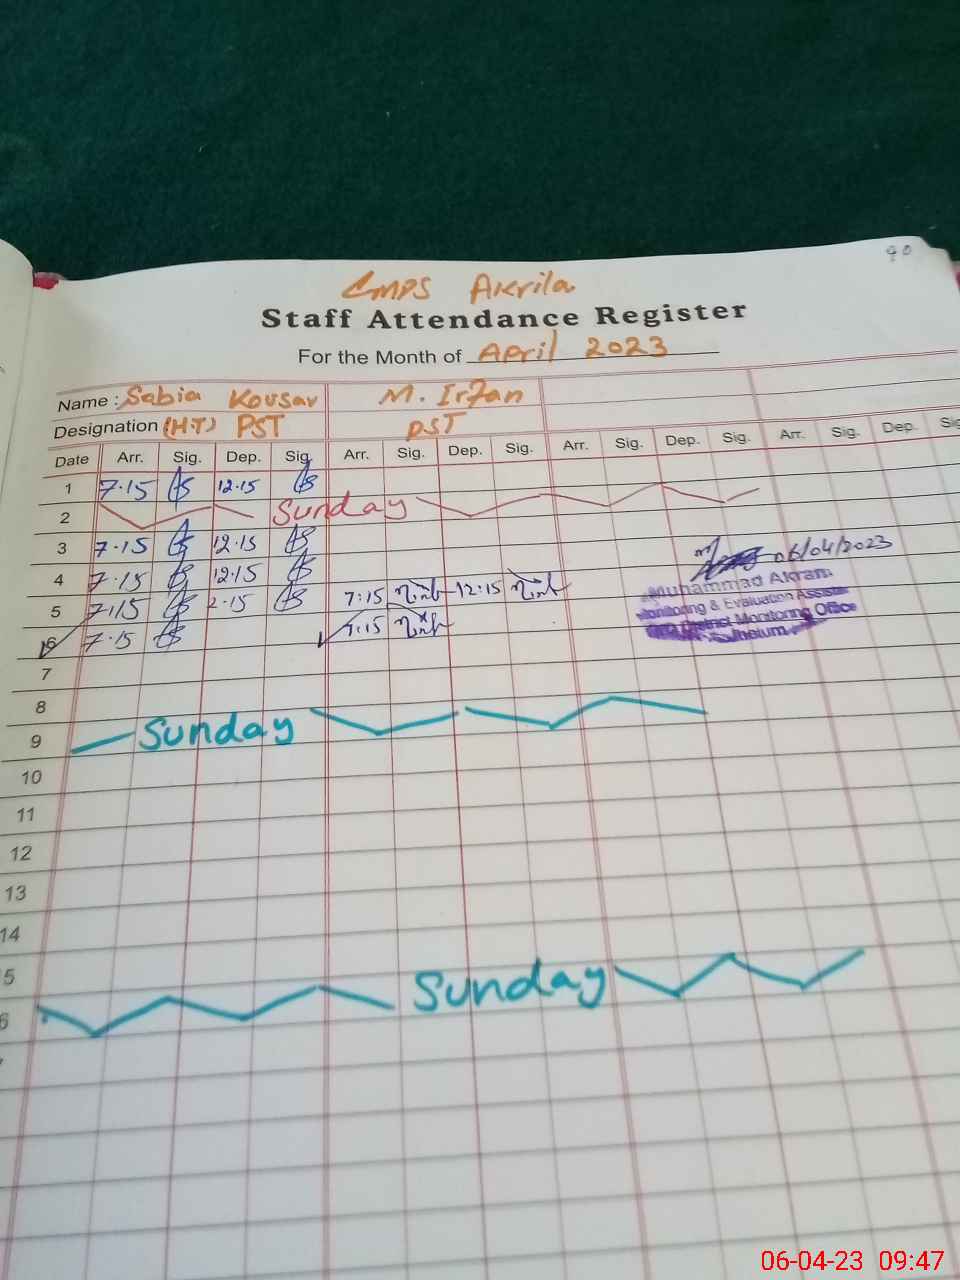 90
GMPS Akrila
Staff Attendance Register
For the Month of April 2023
Name : Sabia Kousar M. Irfan
Designation (H.T) PST PST
Date Arr. Sig. Dep. Sig. Arr. Sig. Dep. Sig. Arr. Sig. Dep. Sig. Arr. Sig. Dep. Sig
1 7.15 12.15
2 Sunday
3 7.15 12.15
4 7.15 12.15
5 7.15 2.15 7:15 12:15
6 7.15 7:15
7
8
9 Sunday
10
11
12
13
14
5
6 Sunday
06/04/2023
Muhammad Akram
Monitoring & Evaluation Assista
District Monitoring Office
Jhelum
06-04-23 09:47